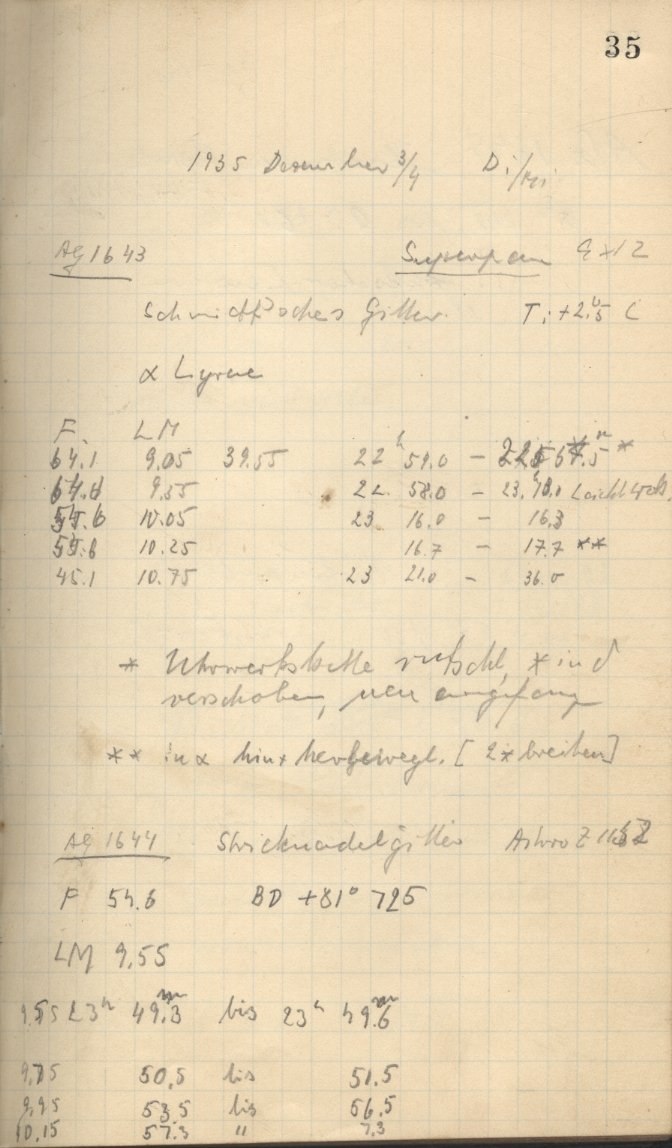 35
1935 Dezember 3/4 Di/Mi
AG 1643 Superpan 9x12
Schmidt'sches Gitter. T: +2.5 C
α Lyrae
F. LM
64.1 9.05 39.55 22h 59.0 – *
9.55 22. 58.0 – Leicht
10.05 23 16.0 – 16.3
55.6 10.25 16.7 – 17.7 **
45.1 10.75 23 21.0 – 36.0
* Uhrwerkskette rutscht, * in δ
verschoben, neu eingefang
** in α hin + herbewegt. [2* breiten]
AG 1644 Stricknadelgitter Astro Z
F 54.6 BD +81° 725
LM 9,55
9.55 23h 49.3m bis 23h 49.6m
50.5 bis 51.5
9,95 53.5 bis 56.5
10.15 57.3 " 7.3